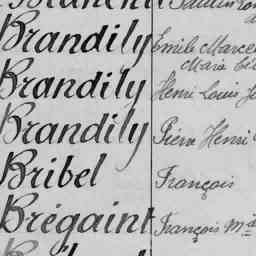 Brandily Emile Marcel
Marie
Brandily Henri Louis
Brandily Pierre Henri
Bribel François
Brégaint François M